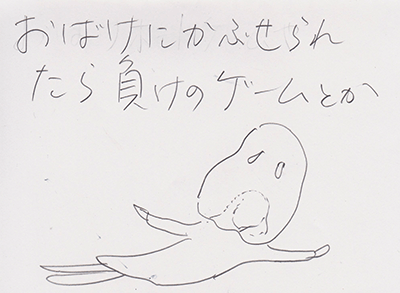 おばけにかぶせられ
たら負けのゲームとか